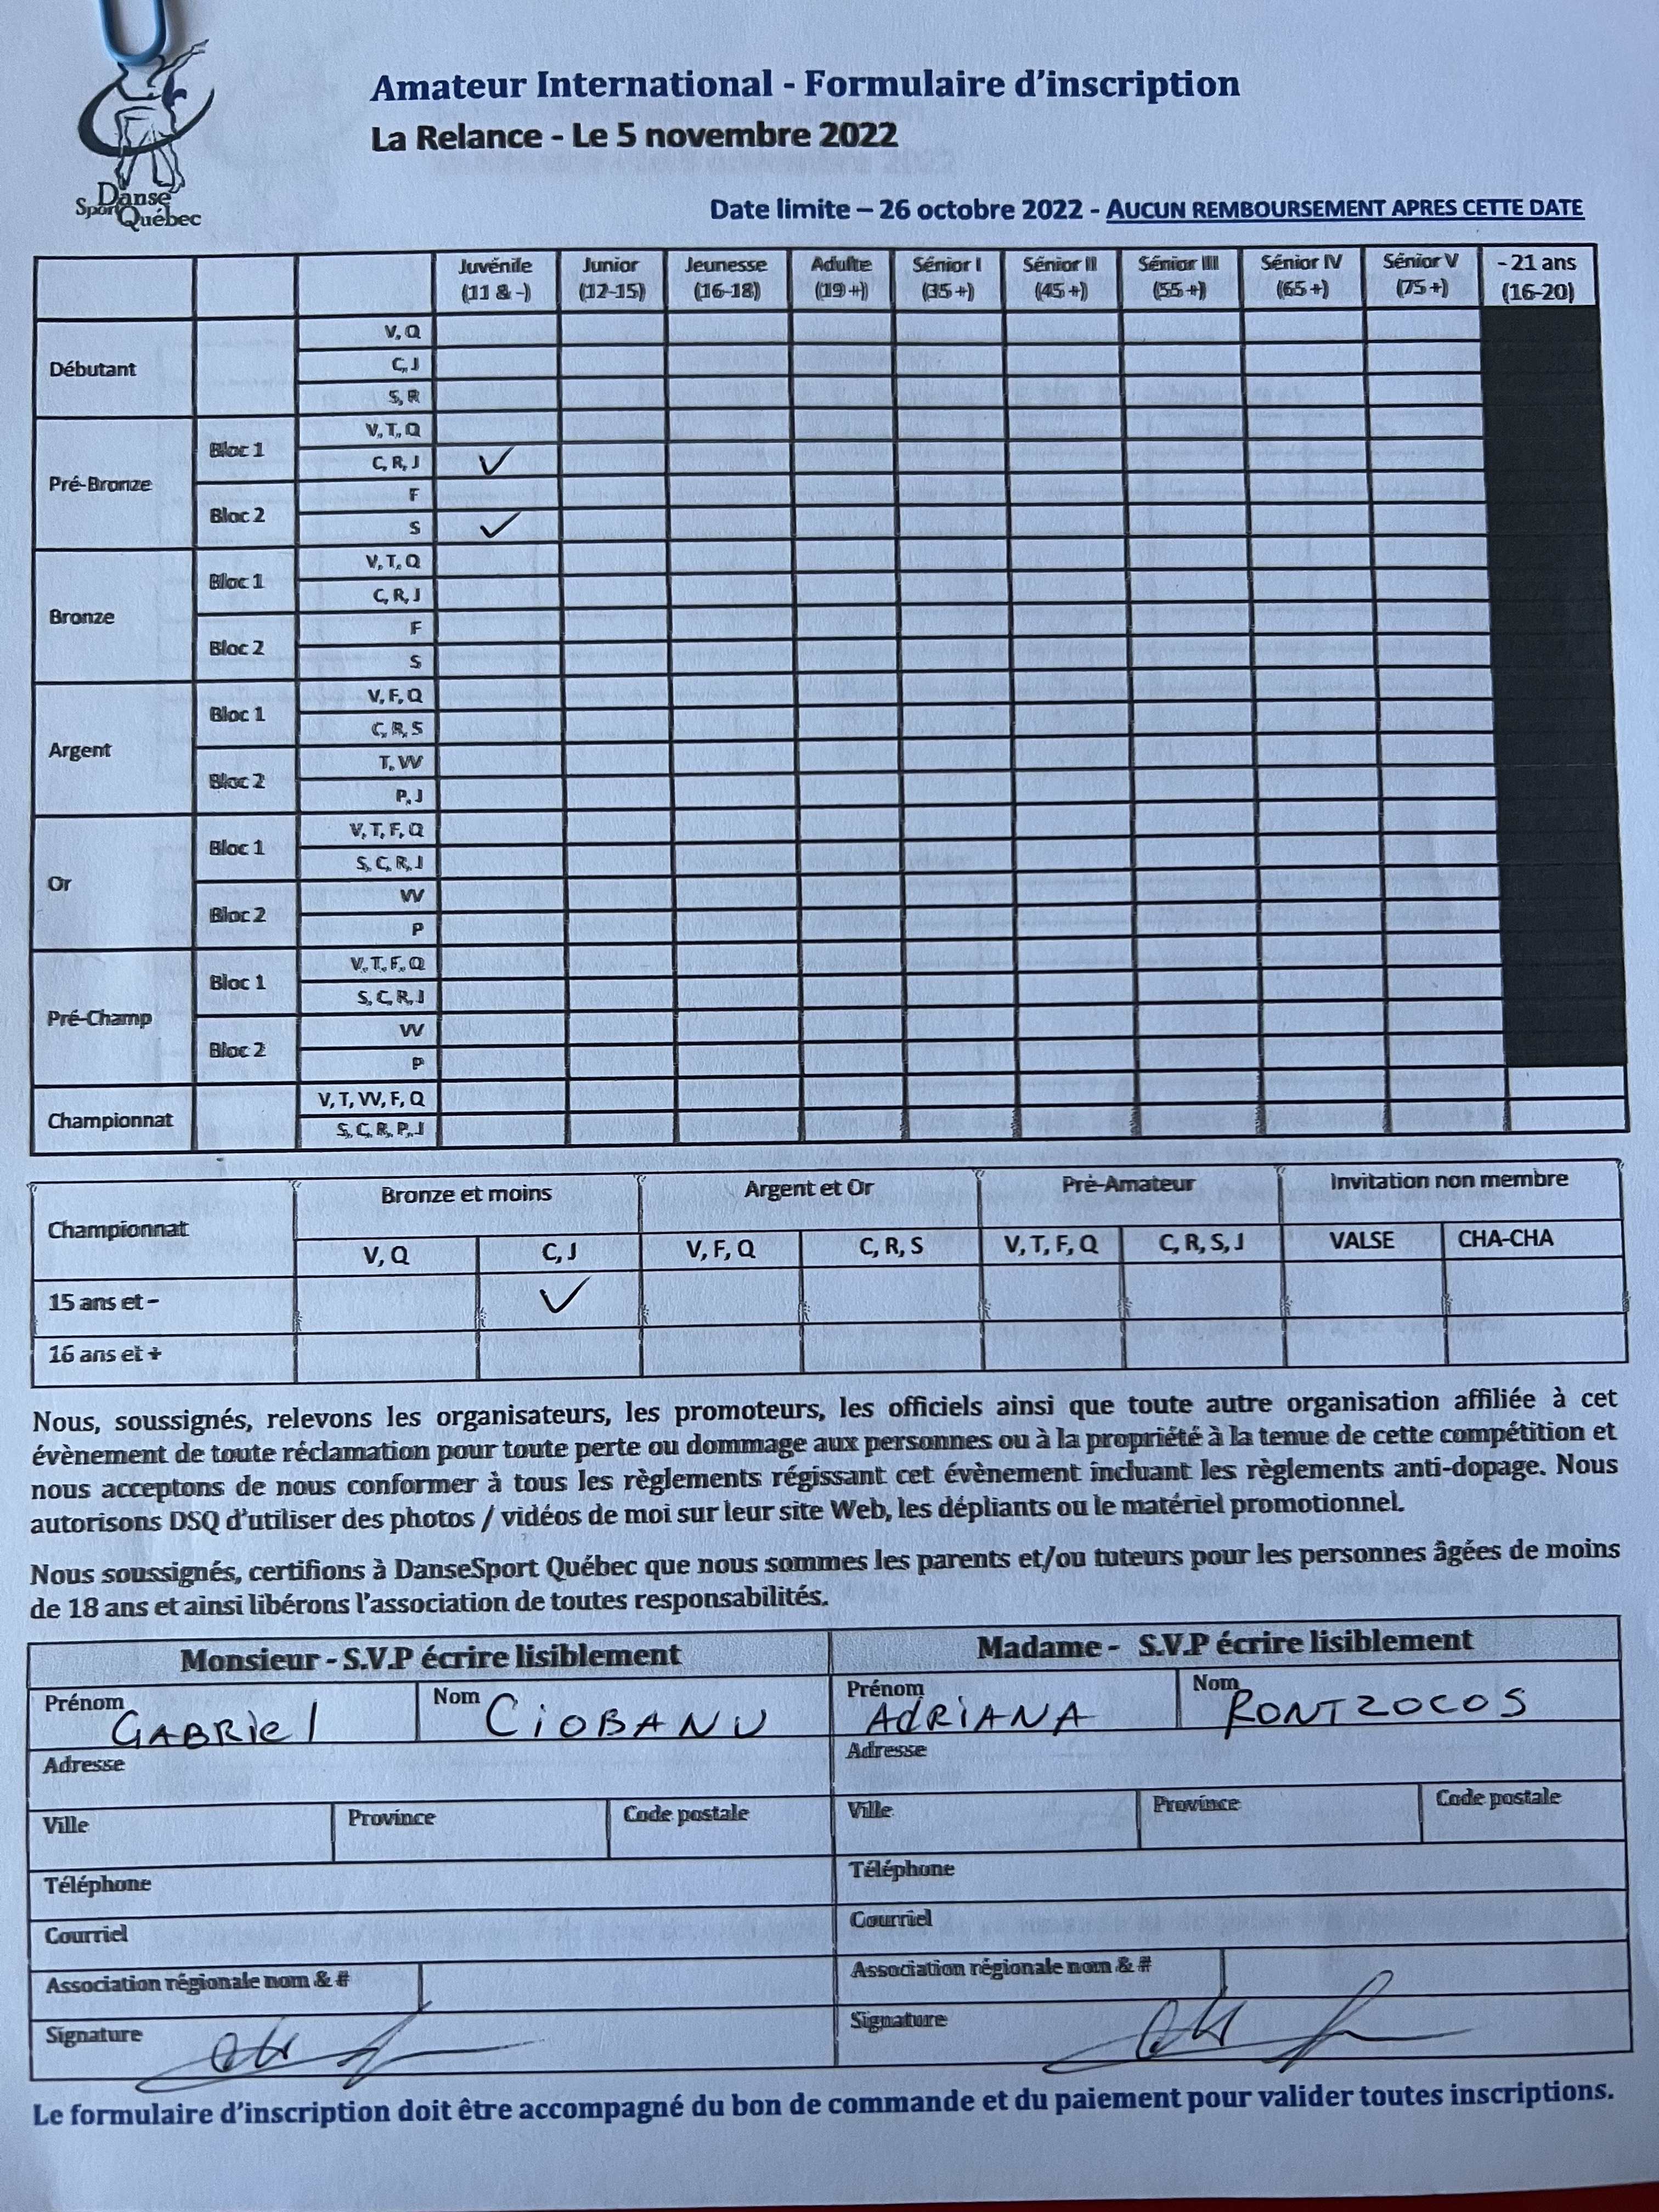 Danse
Sport Québec
Amateur International - Formulaire d'inscription
La Relance - Le 5 novembre 2022
Date limite – 26 octobre 2022 - AUCUN REMBOURSEMENT APRES CETTE DATE
Juvénile (11 & -) Junior (12-15) Jeunesse (16-18) Adulte (19+) Sénior I (35+) Sénior II (45+) Sénior III (55+) Sénior IV (65+) Sénior V (75+) - 21 ans (16-20)
Débutant
V, Q
C, J
S, R
Pré-Bronze
Bloc 1
V, T, Q
C, R, J ✓
Bloc 2
F
S ✓
Bronze
Bloc 1
V, T, Q
C, R, J
Bloc 2
F
S
Argent
Bloc 1
V, F, Q
C, R, S
Bloc 2
T, W
P, J
Or
Bloc 1
V, T, F, Q
S, C, R, J
Bloc 2
W
P
Pré-Champ
Bloc 1
V, T, F, Q
S, C, R, J
Bloc 2
W
P
Championnat
V, T, W, F, Q
S, C, R, P, J
Championnat
Bronze et moins Argent et Or Pré-Amateur Invitation non membre
V, Q C, J V, F, Q C, R, S V, T, F, Q C, R, S, J VALSE CHA-CHA
15 ans et - ✓
16 ans et +
Nous, soussignés, relevons les organisateurs, les promoteurs, les officiels ainsi que toute autre organisation affiliée à cet
évènement de toute réclamation pour toute perte ou dommage aux personnes ou à la propriété à la tenue de cette compétition et
nous acceptons de nous conformer à tous les règlements régissant cet évènement incluant les règlements anti-dopage. Nous
autorisons DSQ d'utiliser des photos / vidéos de moi sur leur site Web, les dépliants ou le matériel promotionnel.
Nous soussignés, certifions à DanseSport Québec que nous sommes les parents et/ou tuteurs pour les personnes âgées de moins
de 18 ans et ainsi libérons l'association de toutes responsabilités.
Monsieur - S.V.P écrire lisiblement Madame - S.V.P écrire lisiblement
Prénom GABRIEl Nom CIOBANU Prénom ADRIANA Nom RONTZOCOS
Adresse Adresse
Ville Province Code postale Ville Province Code postale
Téléphone Téléphone
Courriel Courriel
Association régionale nom & # Association régionale nom & #
Signature Signature
Le formulaire d'inscription doit être accompagné du bon de commande et du paiement pour valider toutes inscriptions.